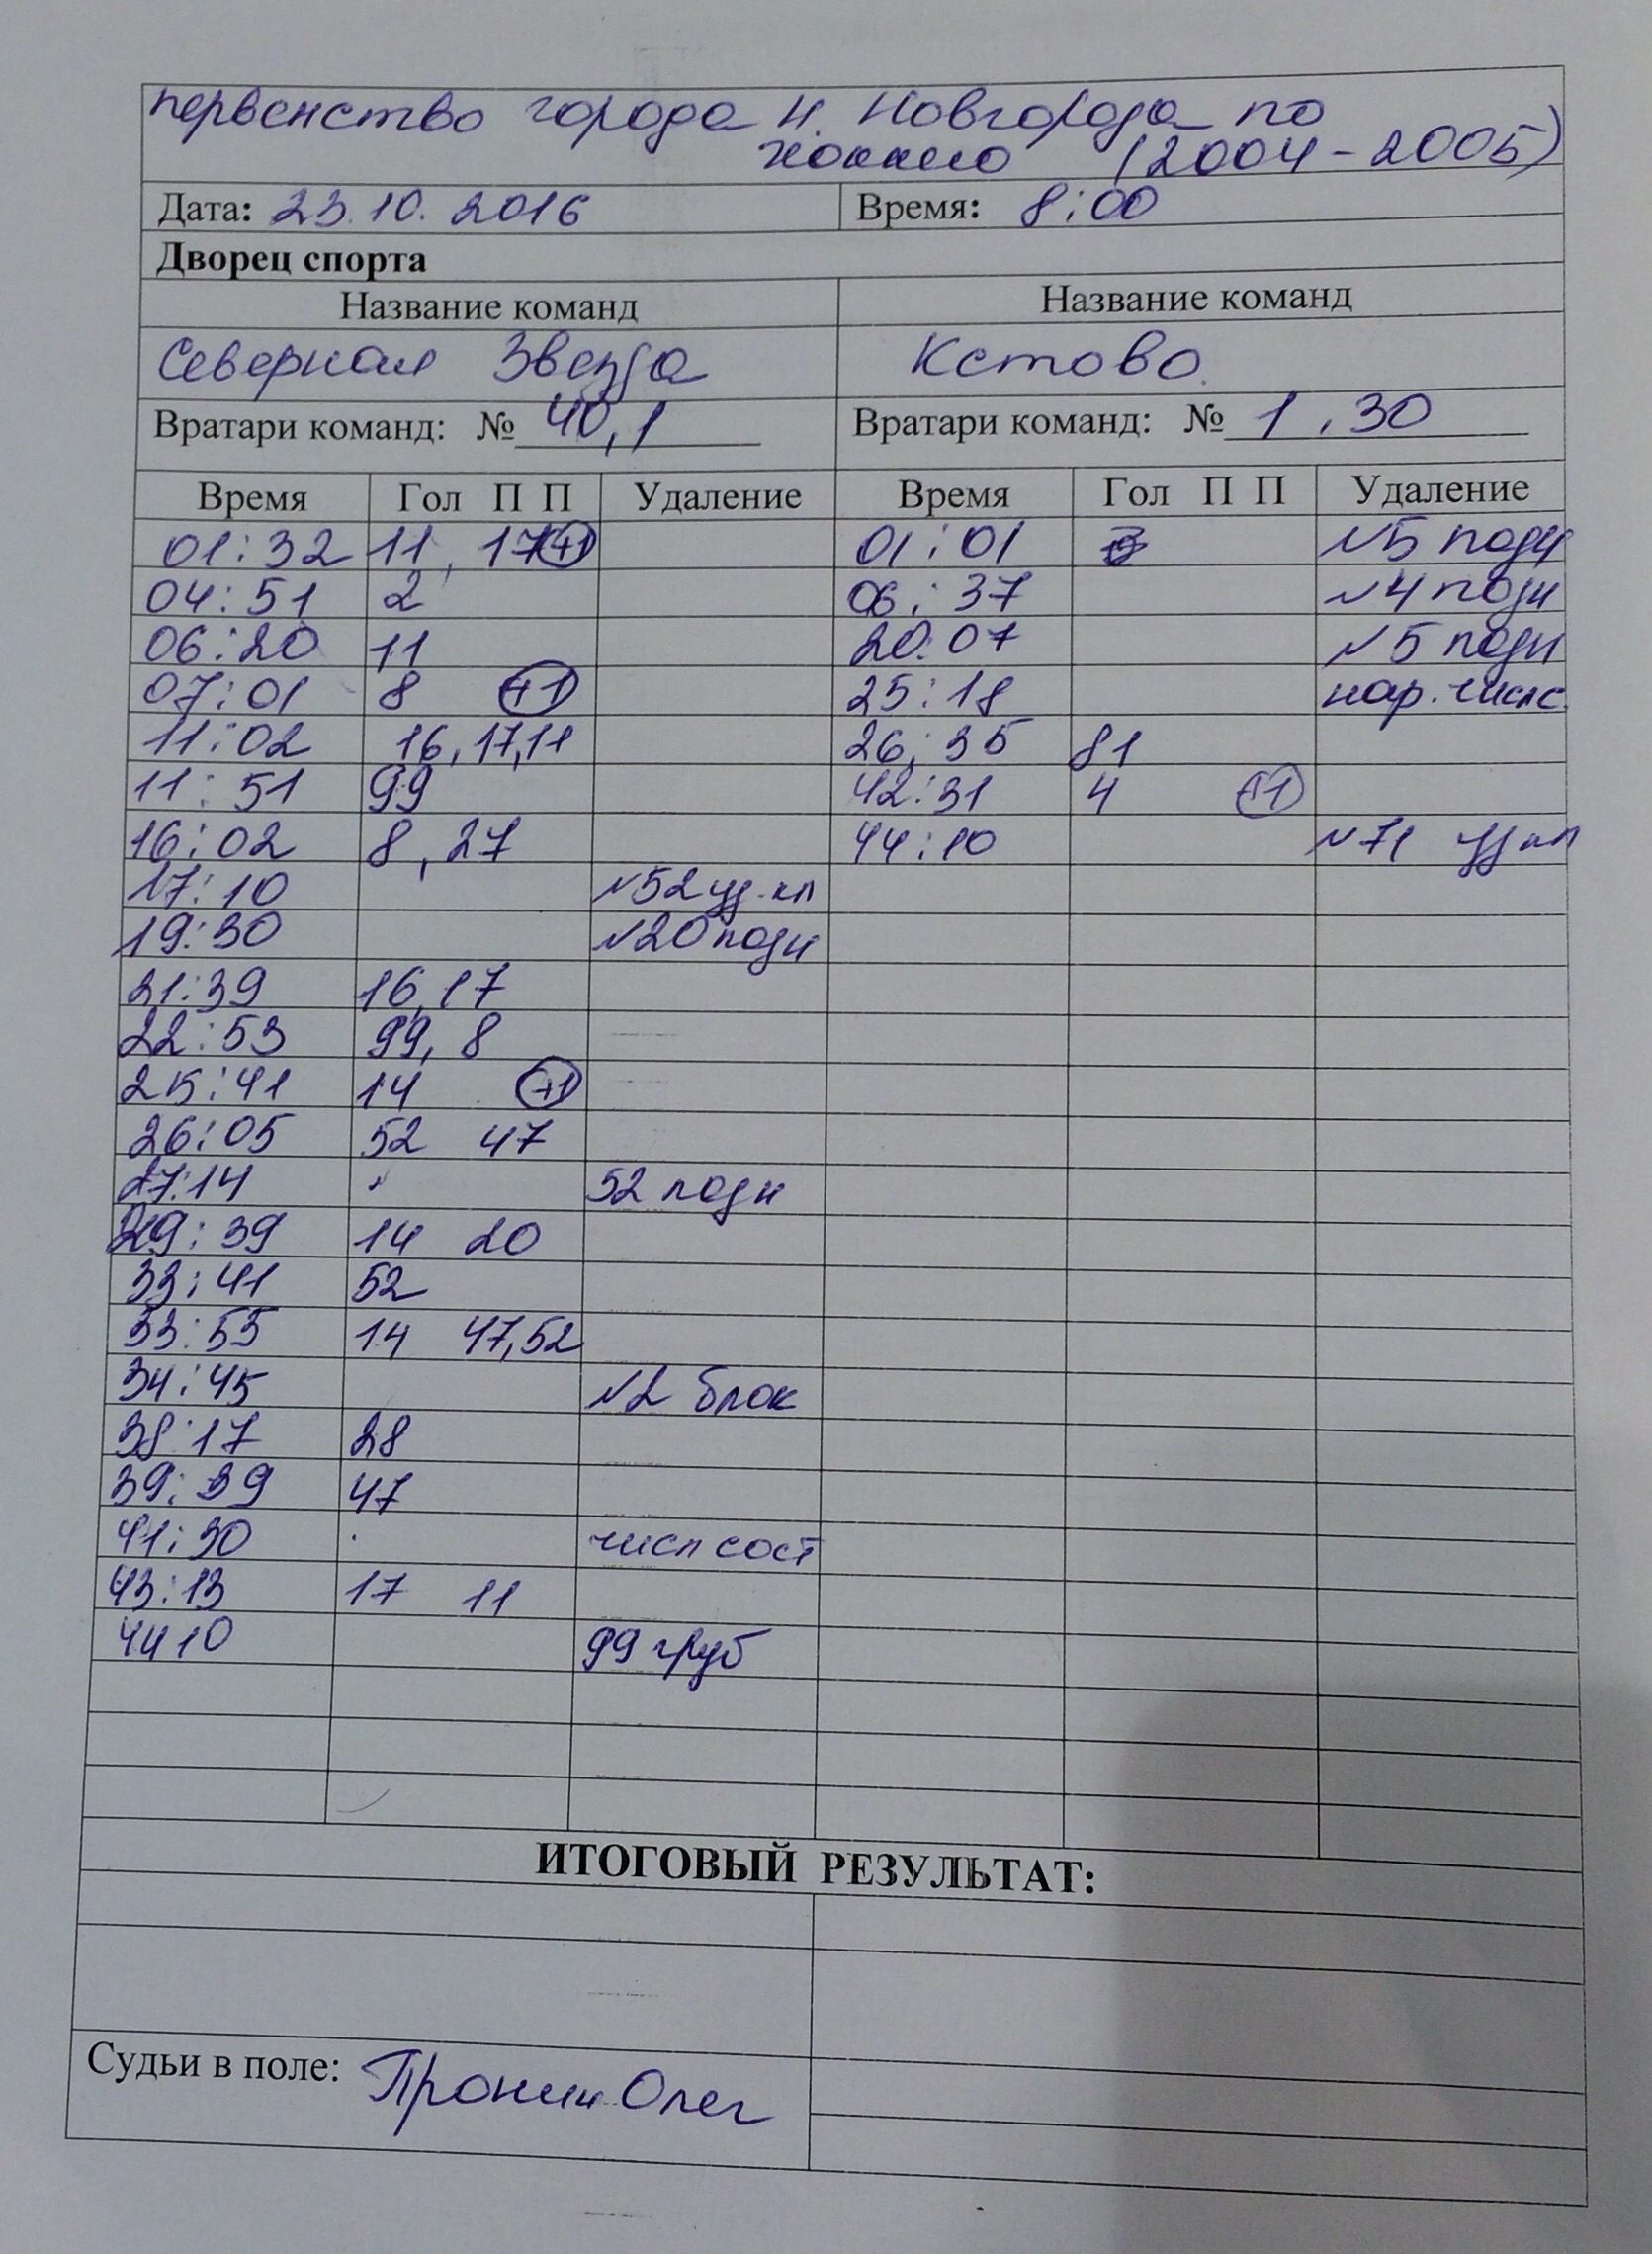 первенство города Н. Новгорода по
хоккею (2004-2005)
Дата: 23.10.2016 Время: 8:00
Дворец спорта
Название команд Название команд
Северная Звезда Кстово.
Вратари команд: № 40,1 Вратари команд: № 1,30
Время Гол П П Удаление Время Гол П П Удаление
01:32 11, 17 +1 01:01 №5 подн
04:51 2 06:37 №4 подн
06:20 11 20:07 №5 подн
07:01 8 +1 25:18 нар. числ.
11:02 16,17,11 26:35 81
11:51 99 42:31 4 +1
16:02 8,27 44:10 №71 уд кл
17:10 №52 уд.кл
19:30 №20 подн
21:39 16,17
22:53 99, 8
25:41 14 +1
26:05 52 47
27:14 52 подн
29:39 14 20
33:41 52
33:55 14 47,52
34:45 №2 блок
38:17 28
39:39 47
41:30 числ сост
43:13 17 11
4410 99 груб
ИТОГОВЫЙ РЕЗУЛЬТАТ:
Судьи в поле: Пронин Олег